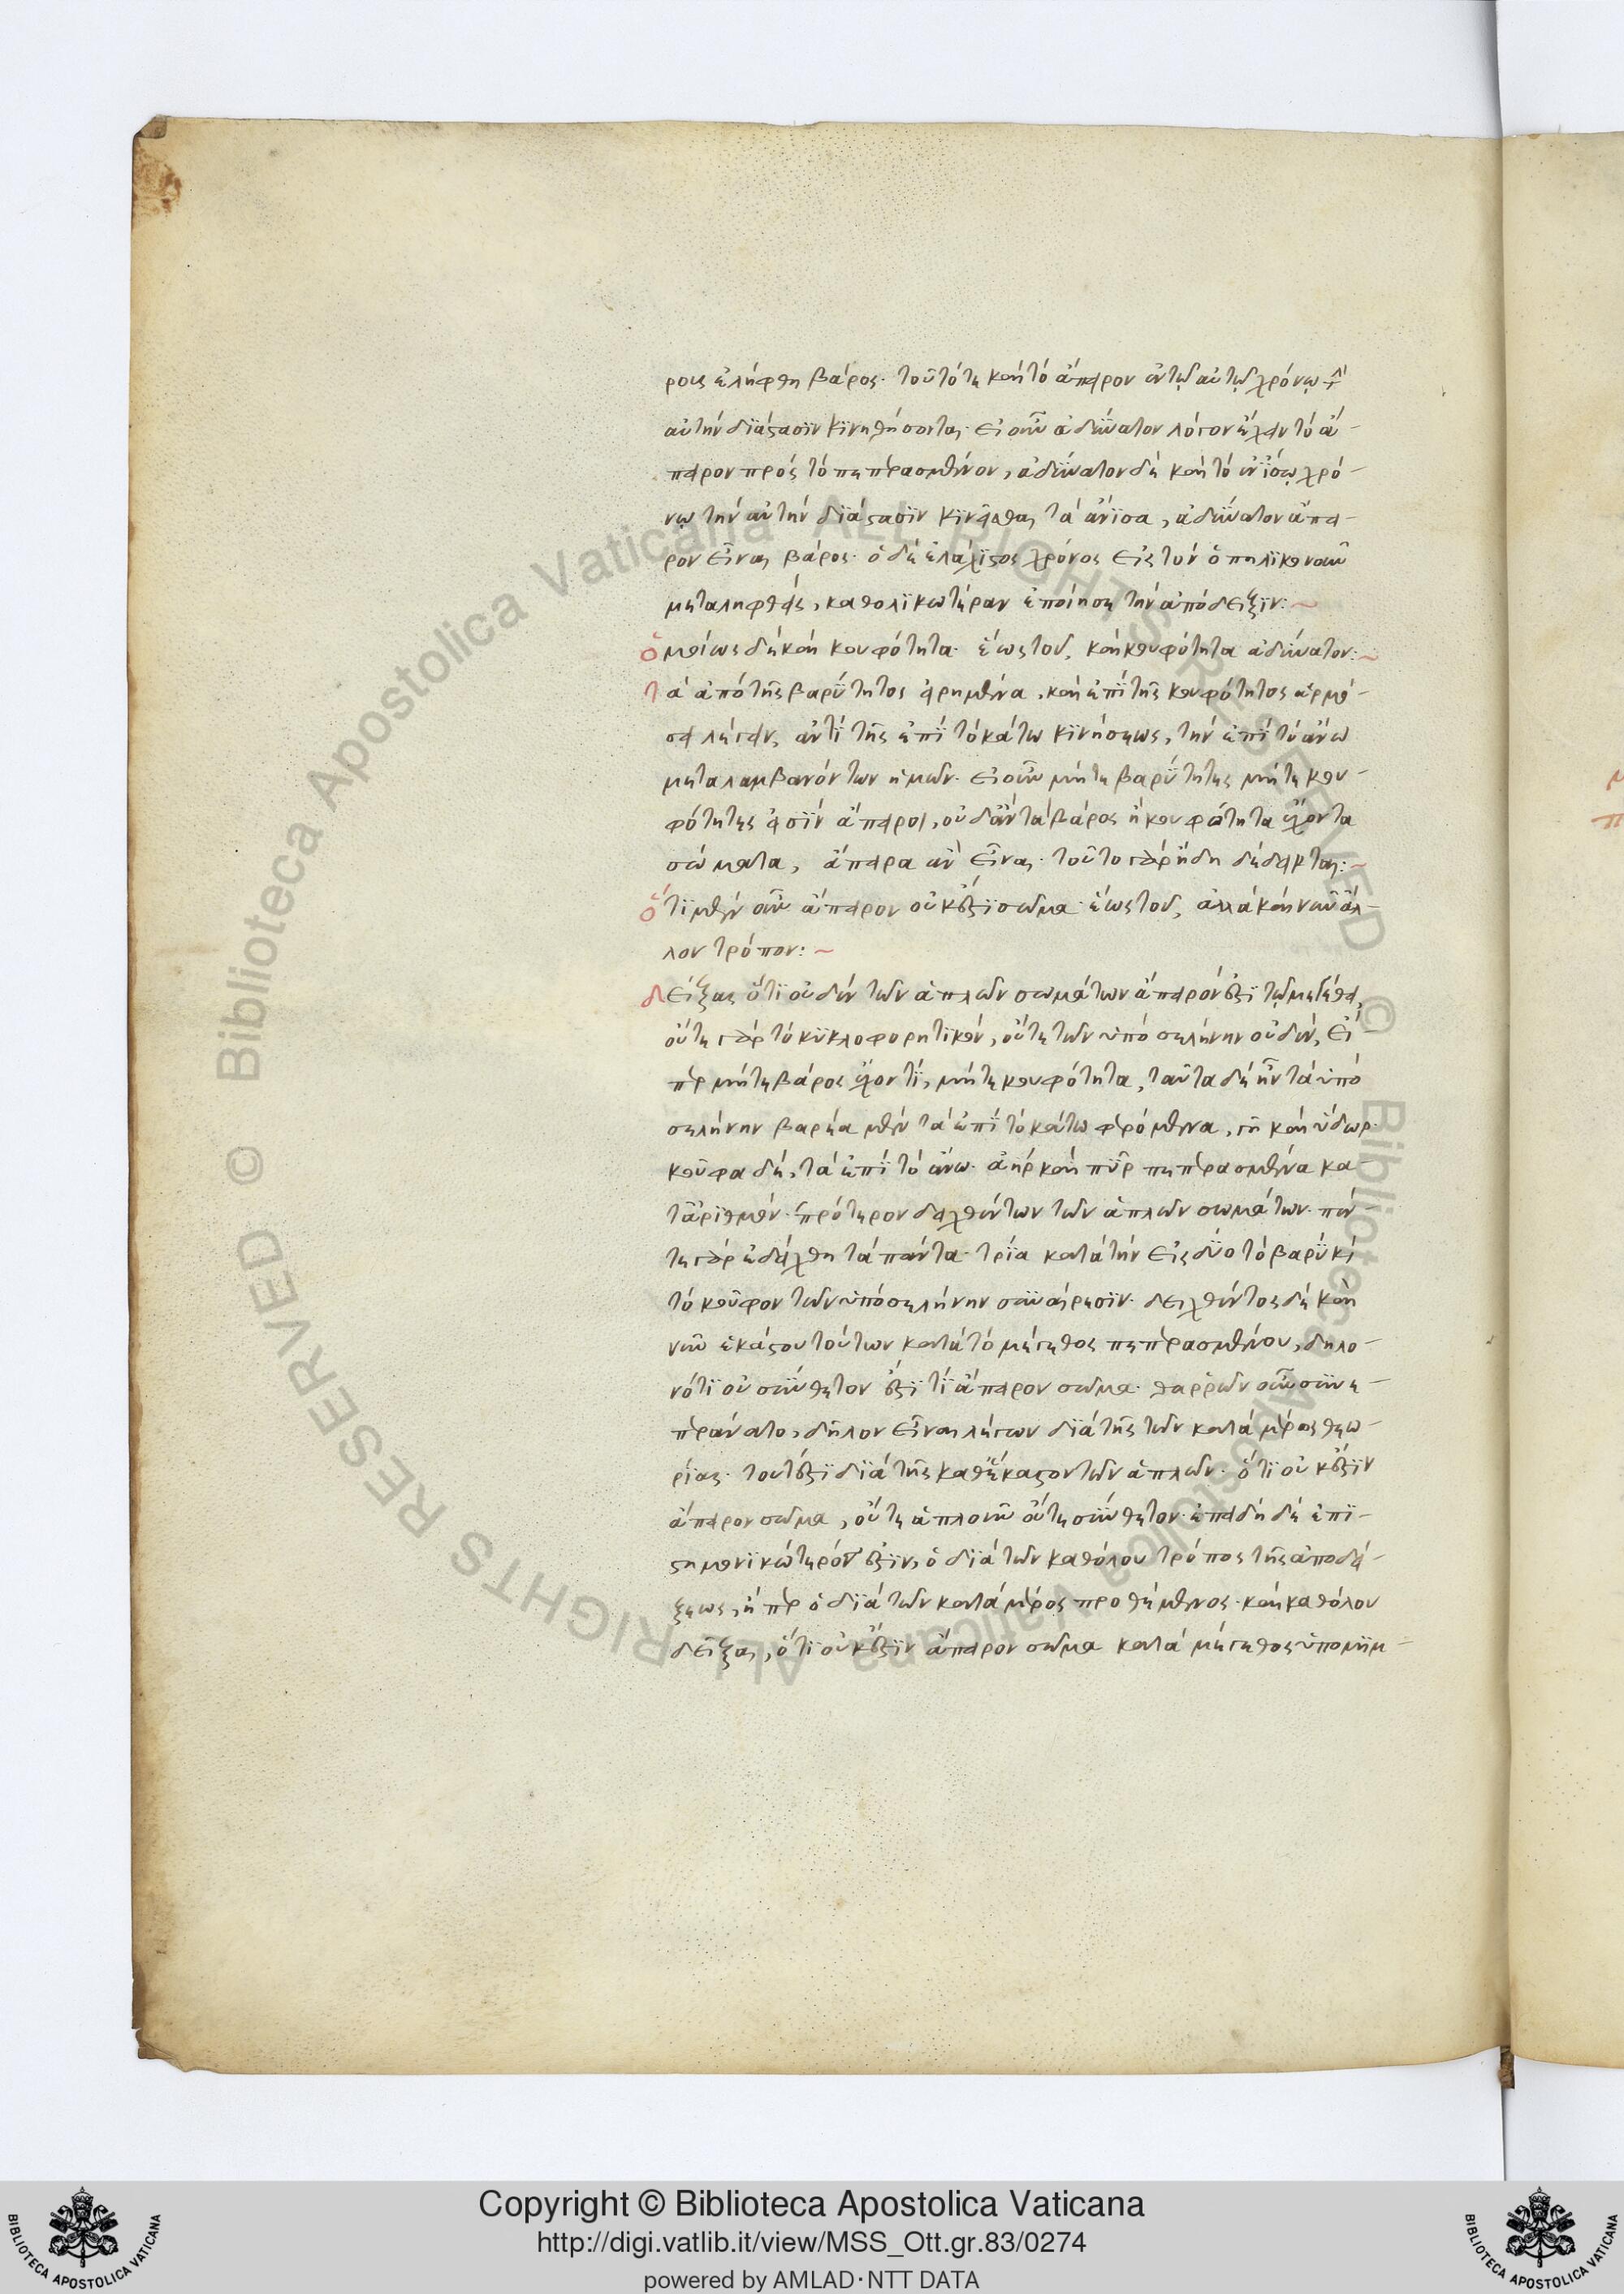 ρους ἐλήφθη βάρος· τοῦτό τε καὶ τὸ ἄπειρον ἐν τῷ αὐτῷ χρόνῳ τὴν
αὐτὴν διάστασιν κινηθήσονται· εἰ οὖν ἀδύνατον λόγον ἔχειν τὸ ἄ-
πειρον πρὸς τὸ πεπερασμένον, ἀδύνατον δὲ καὶ τὸ ἐν ἴσῳ χρό-
νῳ τὴν αὐτὴν διάστασιν κινεῖσθαι τὰ ἄνισα, ἀδύνατον ἄπει-
ρον εἶναι βάρος· ὁ δὲ ἐλάχιστος χρόνος εἰς τὸν ὁπηλικονοῦν
μεταληφθεὶς, καθολικωτέραν ἐποίησε τὴν ἀπόδειξιν:~
ὁμοίως δὲ καὶ κουφότητα· ἕως τοῦ, καὶ κουφότητα ἀδύνατον:~
τὰ ἀπὸ τῆς βαρύτητος εἰρημένα, καὶ ἐπὶ τῆς κουφότητος ἁρμό-
σει λέγειν, ἀντὶ τῆς ἐπὶ τὸ κάτω κινήσεως, τὴν ἐπὶ τὸ ἄνω
μεταλαμβανόντων ἡμῶν· εἰ οὖν μήτε βαρύτητες μήτε κου-
φότητές εἰσιν ἄπειροι, οὐδ' ἂν τὰ βάρος ἢ κουφότητα ἔχοντα
σώματα, ἄπειρα ἂν εἶναι· τοῦτο γὰρ ἤδη δέδεικται:~
ὅτι μὲν οὖν ἄπειρον οὐκ ἔστι σῶμα· ἕως τοῦ, ἀλλὰ καὶ νῦν ἄλ-
λον τρόπον:~
δείξας ὅτι οὐδὲν τῶν ἁπλῶν σωμάτων ἄπειρόν ἐστι τῷ μεγέθει,
οὔτε γὰρ τὸ κυκλοφορητικόν, οὔτε τῶν ὑπὸ σελήνην οὐδὲν, εἴ-
περ μήτε βάρος ἔχον τί, μήτε κουφότητα, ταῦτα δὲ ἦν τὰ ὑπὸ
σελήνην βαρέα μὲν τὰ ἐπὶ τὸ κάτω φερόμενα, γῆ καὶ ὕδωρ·
κοῦφα δὲ, τὰ ἐπὶ τὸ ἄνω· ἀὴρ καὶ πῦρ πεπερασμένα κα-
τ' ἀριθμὸν· πρότερον δειχθέντων τῶν ἁπλῶν σωμάτων· πέν-
τε γὰρ ἐδείχθη τὰ πάντα· τρία κατὰ τὴν εἰς δύο τὸ βαρὺ καὶ
τὸ κοῦφον τῶν ὑπὸ σελήνην συναίρεσιν· δειχθέντος δὲ καὶ
νῦν ἑκάστου τούτων κατὰ τὸ μέγεθος πεπερασμένου, δηλο-
νότι οὐ σύνθετον ἔστι τί ἄπειρον σῶμα· θαρρῶν οὖν συνε-
περάνατο, δῆλον εἶναι λέγων διὰ τῆς τῶν κατὰ μέρος θεω-
ρίας· τουτέστι διὰ τῆς καθ' ἕκαστον τῶν ἁπλῶν· ὅτι οὐκ ἔστιν
ἄπειρον σῶμα, οὔτε ἁπλοῦν οὔτε σύνθετον· ἐπειδὴ δὲ ἐπι-
στημονικώτερός ἐστιν, ὁ διὰ τῶν καθόλου τρόπος τῆς ἀποδεί-
ξεως, ἤπερ ὁ διὰ τῶν κατὰ μέρος προθέμενος· καὶ καθόλου
δεῖξαι, ὅτι οὐκ ἔστιν ἄπειρον σῶμα κατὰ μέγεθος ὑπομιμ-
Copyright © Biblioteca Apostolica Vaticana
http://digi.vatlib.it/view/MSS_Ott.gr.83/0274
powered by AMLAD·NTT DATA